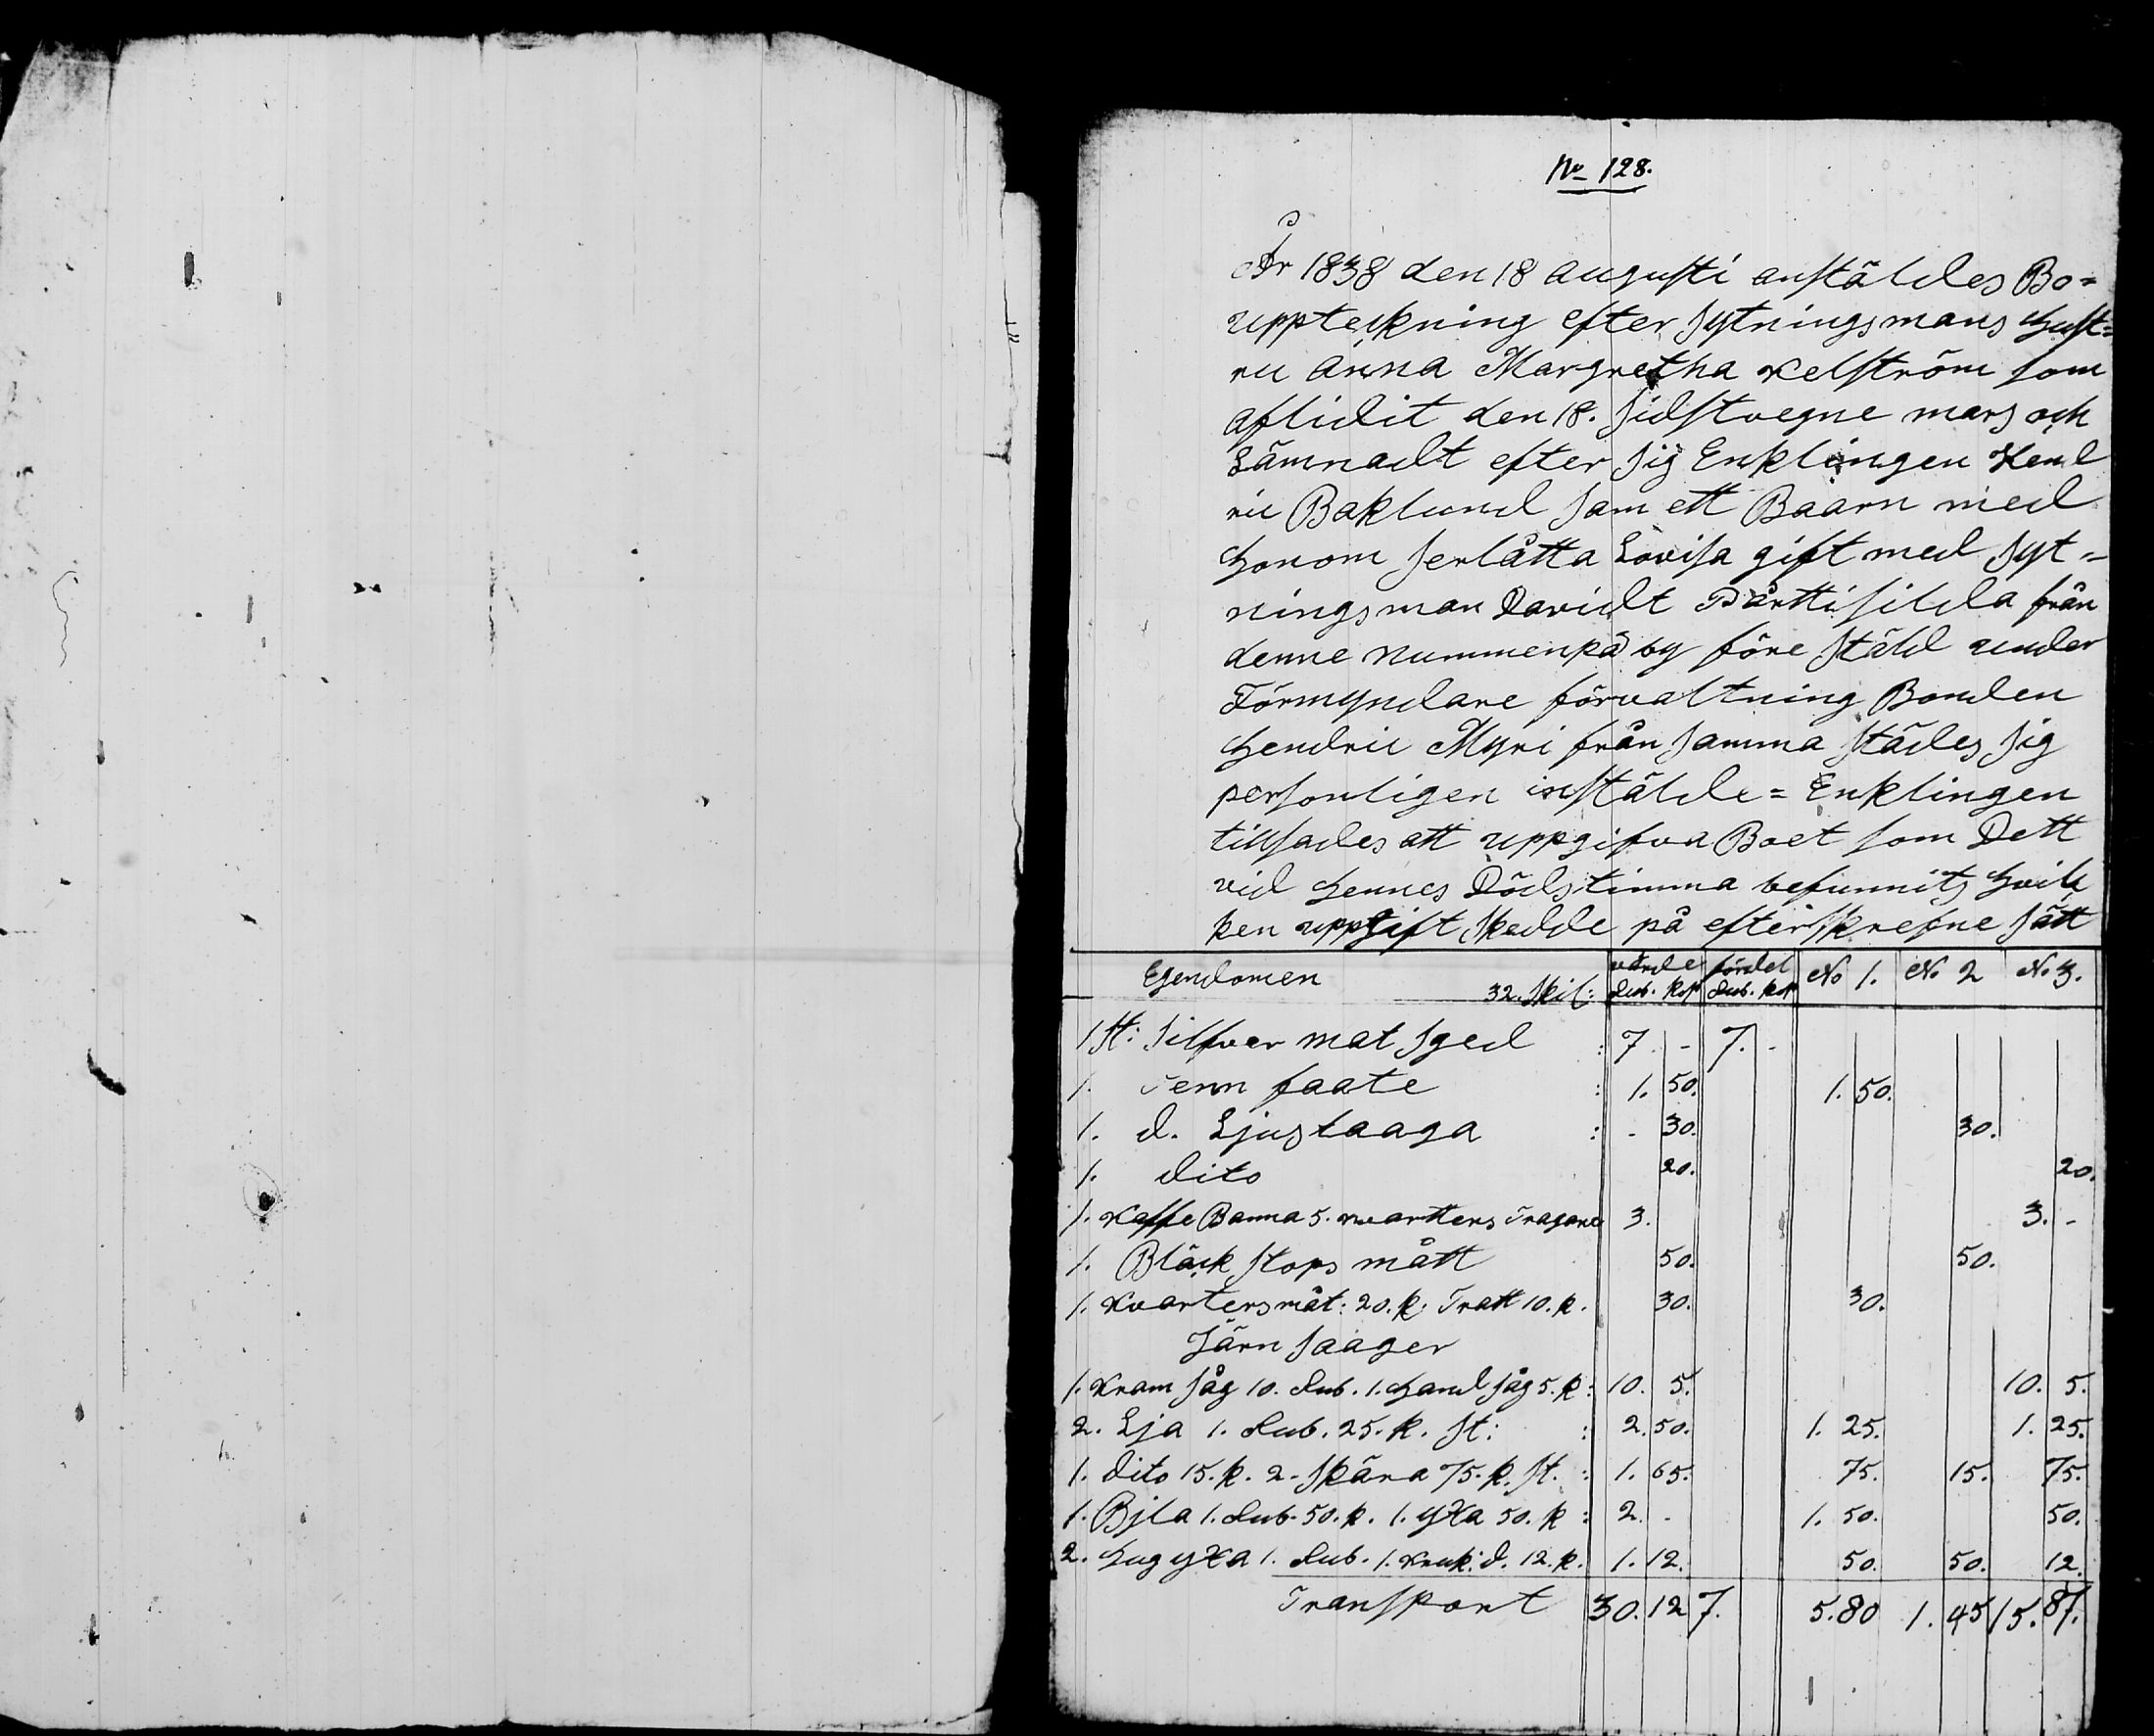 No 128.
År 1838 den 18 augusti anstäldes Bo=
uppteckning efter sytningsmans hust=
ru Anna Margretha Kelström som
aflidit den 18. sidstvegne mars och
Lämnadt efter sig Enklingen Hend
ric Baklund sam ett Baarn med
honom serlåtta Lovisa gift med syt=
ningsman Davidt Pårttisilda från
denne nummenpä by före stäld under
Förmyndare förvaltning Bonden
Hendric Myri från samma städes sig
personligen instälde = Enklingen
tillsades att uppgifva Boet som Dett
vid hennes Dödstimma befunnits hvil
ken uppgift skedde på efterskrefne sätt
Egendomen 32. skil: värde Rub. kop fördel Rub. kop No 1. No 2 No 3.
1 st: silfver mat sged : 7. - 7. -
1. Tenn faate : 1. 50. 1. 50.
1. d. Ljustaaga : - 30. 30.
1. dito 20. 20.
1. Kaffe Banna 5. kvartters Tragare 3. 3. -
1. Bläck stops mått 50. 50.
1. Kvartersmåt: 20. k. Tratt 10. k. 30. 30.
Järn saager
1. Kram såg 10. Rub. 1. hand såg 5. k : 10. 5. 10. 5.
2. Lja 1. Rub. 25. k. st: : 2. 50. 1. 25. 1. 25.
1. dito 15. k. 2. skära 75. k. st. : 1. 65. 75. 15. 75.
1. Bjla 1. Rub. 50. k. 1. yxa 50. k : 2. - 1. 50. 50.
2. hug yxa 1. Rub. 1. Kruk: d. 12. k. 1. 12. 50. 50. 12.
Transport 30. 12 7. 5. 80 1. 45 15. 87.